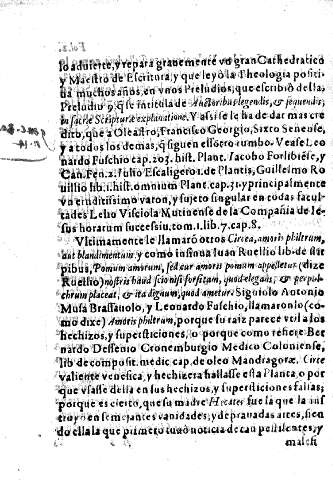 Fol. 2.
lo aduierte, y repara grauemente vn gran Cathedratico
y Maestro de Escritura, y que leyò la Theologia positi-
ua muchos años, en vnos Preludios, que escribiò della,
Preludio 9. q̃ se intitula de Auctoribus legendis, & sequendis,
in sacræ Scripturæ explanatione. Y assi se le ha de dar mas cre
dito, que a Oleastro, Francisco Georgio, Sixto Senense,
y a todos los demas, q̃ siguen el otro rumbo. Vease Leo
nardo Fuschio cap. 203. hist. Plant. Iacobo Forlibiẽse, y
Can. Fen. 2. Iulio Escaligero 1. de Plantis, Guillelmo Ro
uillio lib. 1. hist. omnium Plant. cap. 31. y principalmente
vn eruditissimo varon, y sujeto singular en todas facul-
tades Lelio Visciola Mutinense de la Compañia de Ie-
sus horarum succesiu. tom. 1. lib. 7. cap. 8.
Vltimamente le llamarõ otros Circea, amoris philtrum,
aut blandimentum: y como insinua Iuan Ruellio lib. de stir
pibus, Pomum amorum, sed cur amoris pomum appelletur (dize
Ruellio) nostris haud scio nisi forsitam, quod elegãs, & per pul-
chrum placeat, & ita dignum, quod ametur. Siguiolo Antonio
Musa Brassauolo, y Leonardo Fuschio, llamaronlo (co
mo dixe) Amoris philtrum, porque su raiz parece vtil a los
hechizos, y supersticiones, o porque como refiere Ber
nardo Dessenio Cronemburgio Medico Coloniense,
lib. de composit. medic. cap. de oleo Mandragoræ. Circe
valiente venefica, y hechizera hallasse esta Planta, o por
que vsasse della en sus hechizos, y supersticiones falsas;
porque es cierto, que su madre Hecates fue la que la ins
truyò en semejantes vanidades, y deprauadas artes, sien
do ella la que primero tuuo noticia de tan pestilentes, y
malefi